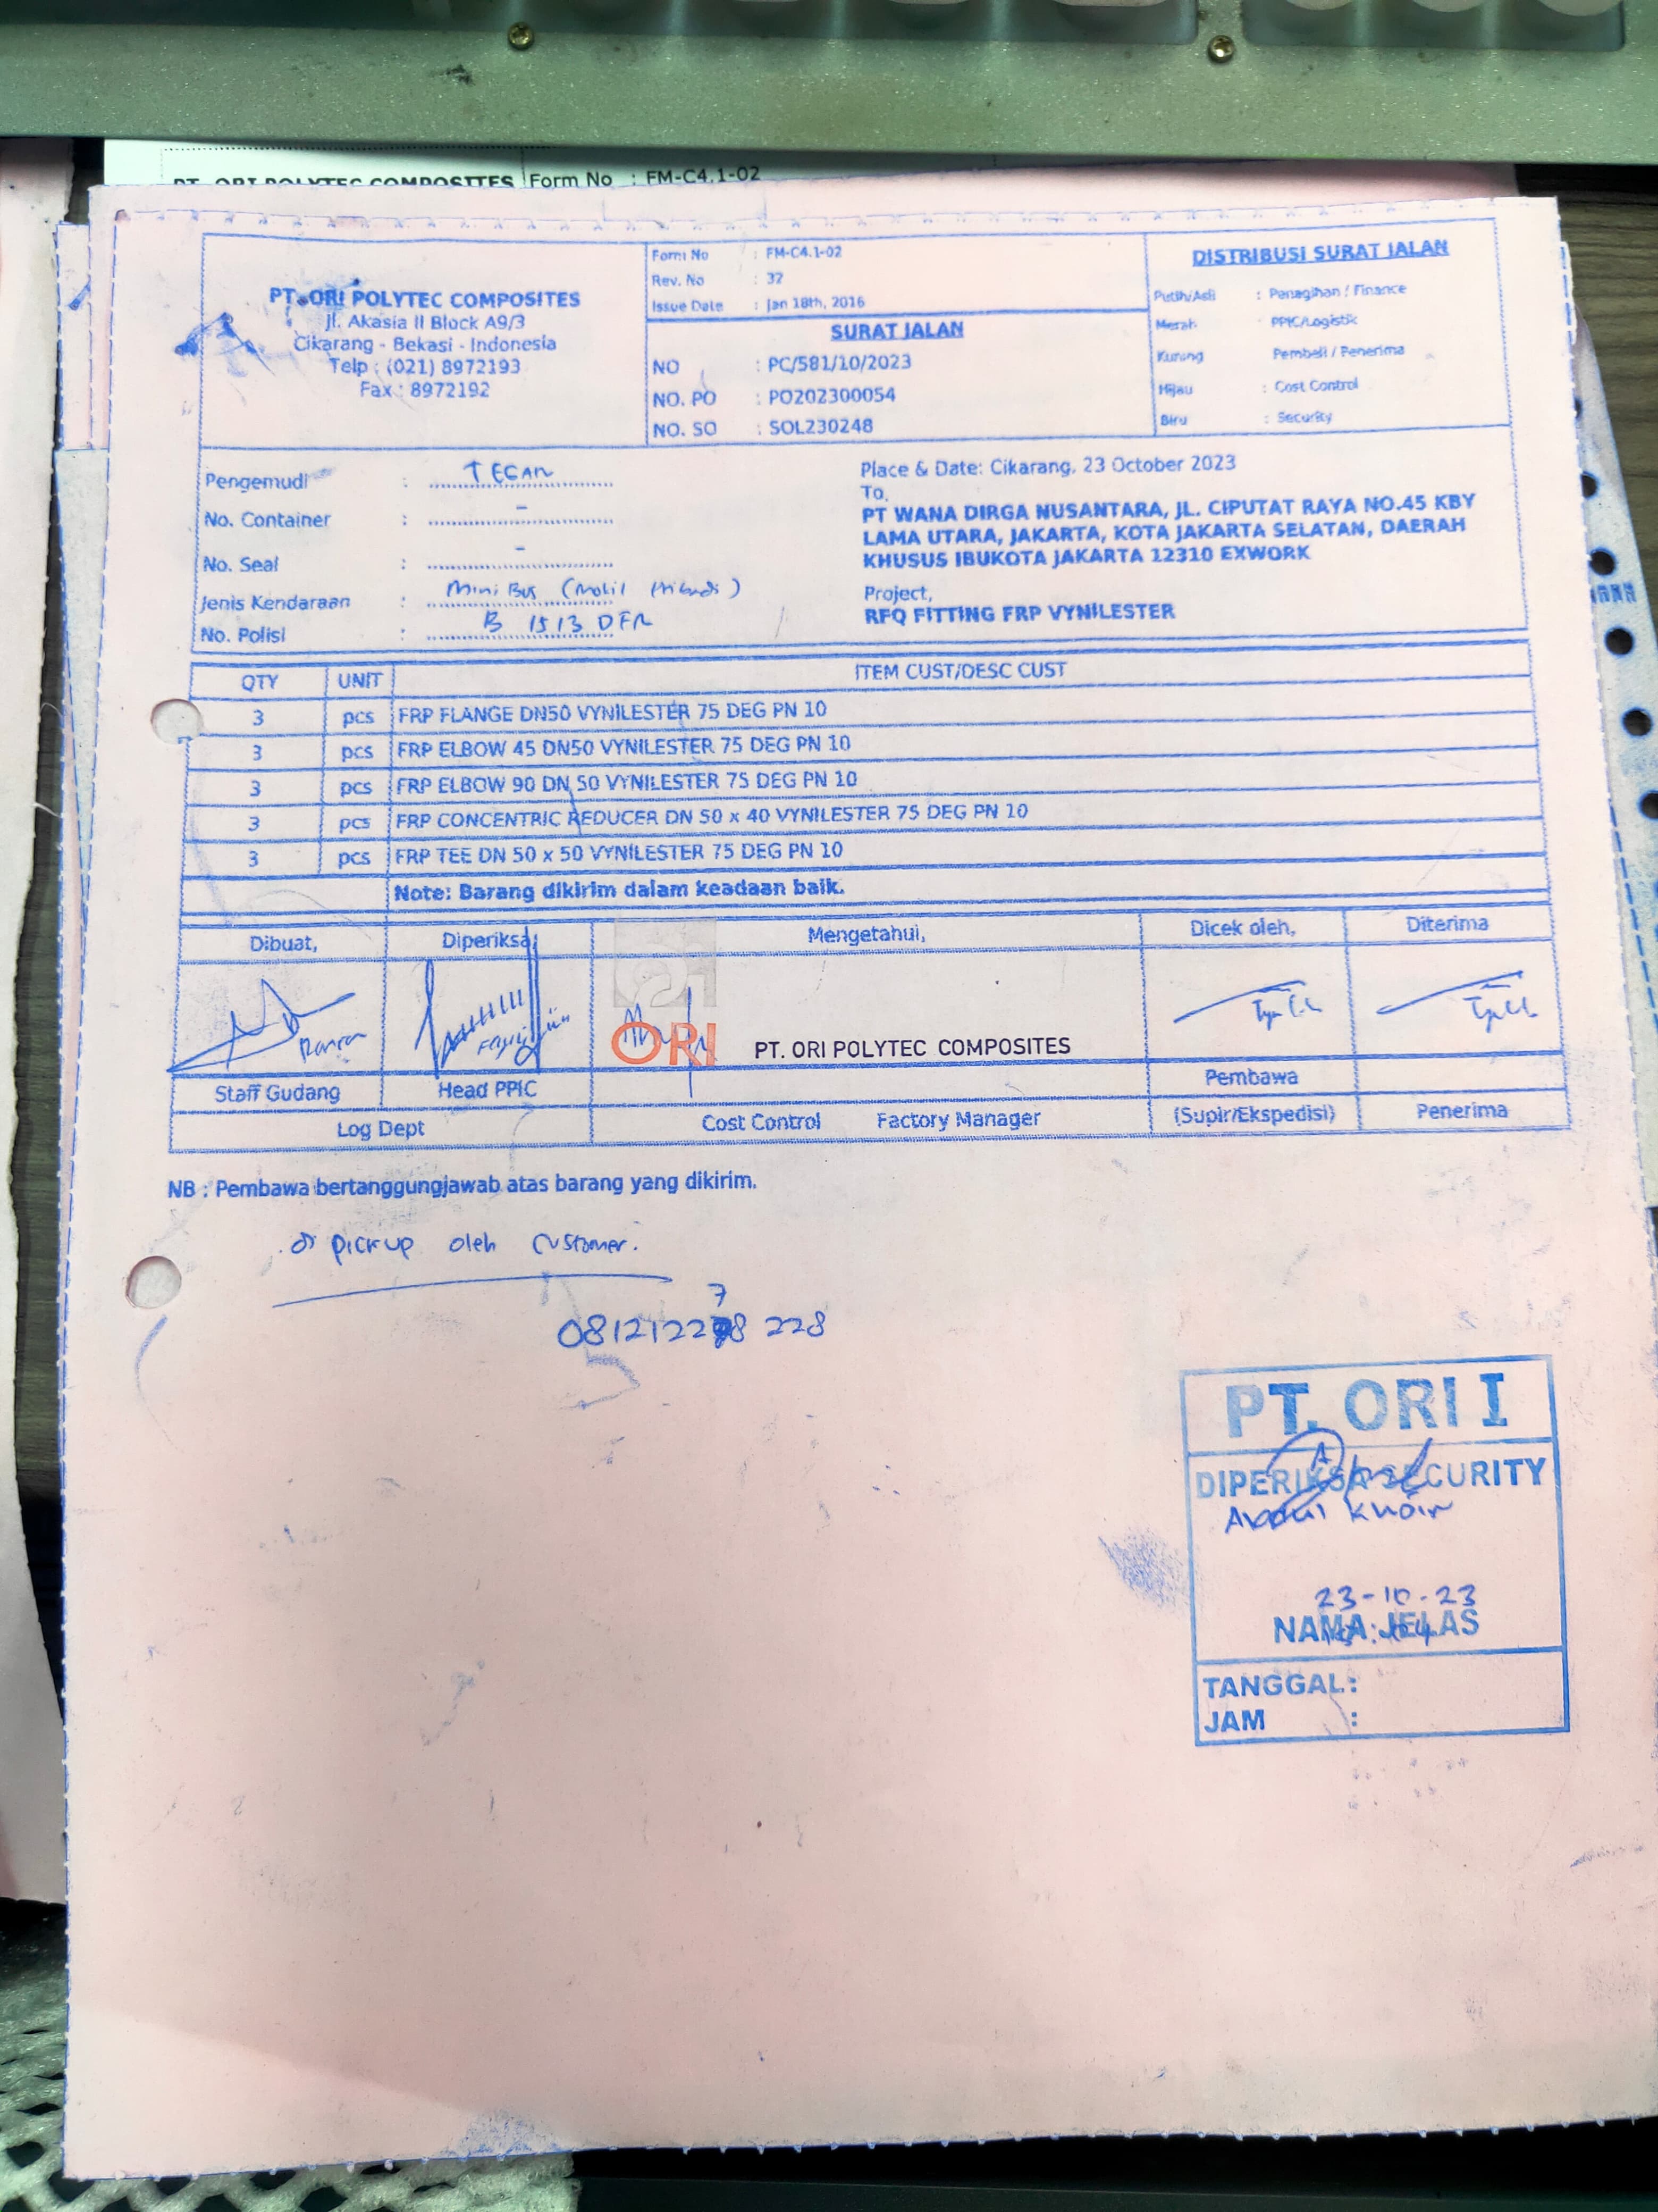 PT. ORI POLYTEC COMPOSITES Form No : FM-C4.1-02
PT. ORI POLYTEC COMPOSITES
Jl. Akasia II Block A9/3
Cikarang - Bekasi - Indonesia
Telp : (021) 8972193
Fax : 8972192
Form No : FM-C4.1-02
Rev. No : 32
Issue Date : Jan 18th, 2016
SURAT JALAN
NO : PC/581/10/2023
NO. PO : PO202300054
NO. SO : SOL230248
DISTRIBUSI SURAT JALAN
Putih/Asli : Penagihan / Finance
Merah : PPIC/Logistik
Kuning Pembeli / Penerima
Hijau : Cost Control
Biru : Security
Pengemudi : TEGAR
No. Container : -
No. Seal : -
Jenis Kendaraan : Mini Bus (Mobil Pribadi)
No. Polisi : B 1513 DFR
Place & Date: Cikarang, 23 October 2023
To,
PT WANA DIRGA NUSANTARA, JL. CIPUTAT RAYA NO.45 KBY
LAMA UTARA, JAKARTA, KOTA JAKARTA SELATAN, DAERAH
KHUSUS IBUKOTA JAKARTA 12310 EXWORK
Project,
RFQ FITTING FRP VYNILESTER
QTY UNIT ITEM CUST/DESC CUST
3 pcs FRP FLANGE DN50 VYNILESTER 75 DEG PN 10
3 pcs FRP ELBOW 45 DN50 VYNILESTER 75 DEG PN 10
3 pcs FRP ELBOW 90 DN 50 VYNILESTER 75 DEG PN 10
3 pcs FRP CONCENTRIC REDUCER DN 50 x 40 VYNILESTER 75 DEG PN 10
3 pcs FRP TEE DN 50 x 50 VYNILESTER 75 DEG PN 10
Note: Barang dikirim dalam keadaan baik.
Dibuat, Diperiksa, Mengetahui, Dicek oleh, Diterima
ORI PT. ORI POLYTEC COMPOSITES
Staff Gudang Head PPIC Pembawa
Log Dept Cost Control Factory Manager (Supir/Ekspedisi) Penerima
NB : Pembawa bertanggungjawab atas barang yang dikirim.
di pickup oleh customer.
7
081212278 228
PT. ORI I
DIPERIKSA SECURITY
Abdul Khoir
23-10-23
NAMA JELAS
TANGGAL:
JAM :